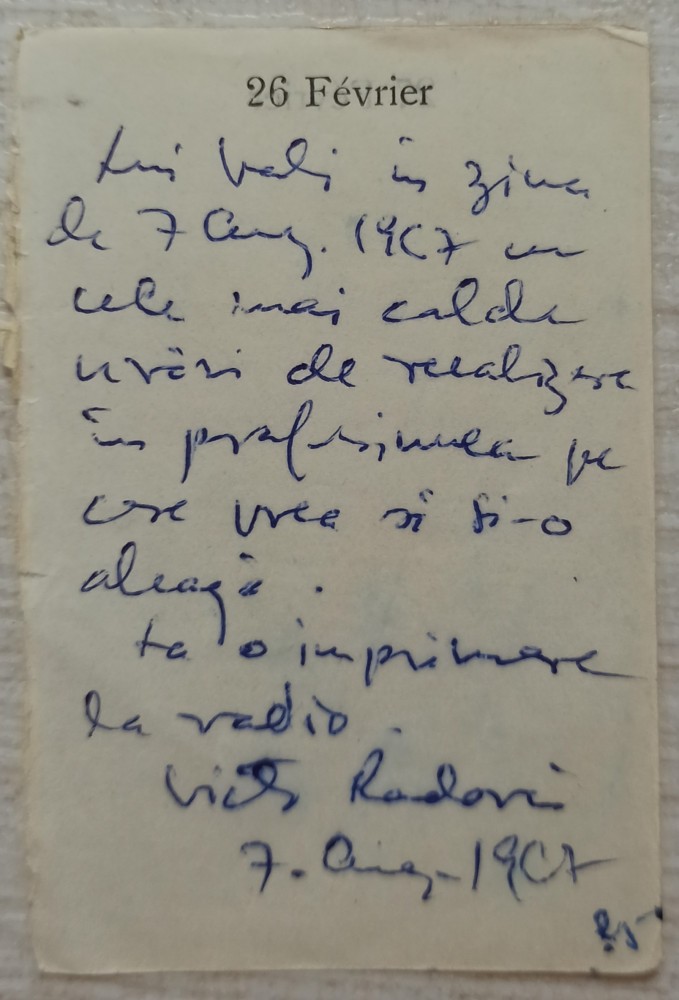 26 Février
Lui Vali în ziua
de 7 Aug. 1967 cu
cele mai calde
urări de realizare
în profesiunea pe
care vrea să și-o
aleagă.
La o imprimare
la radio.
Victor Radovici
7. Aug. 1967